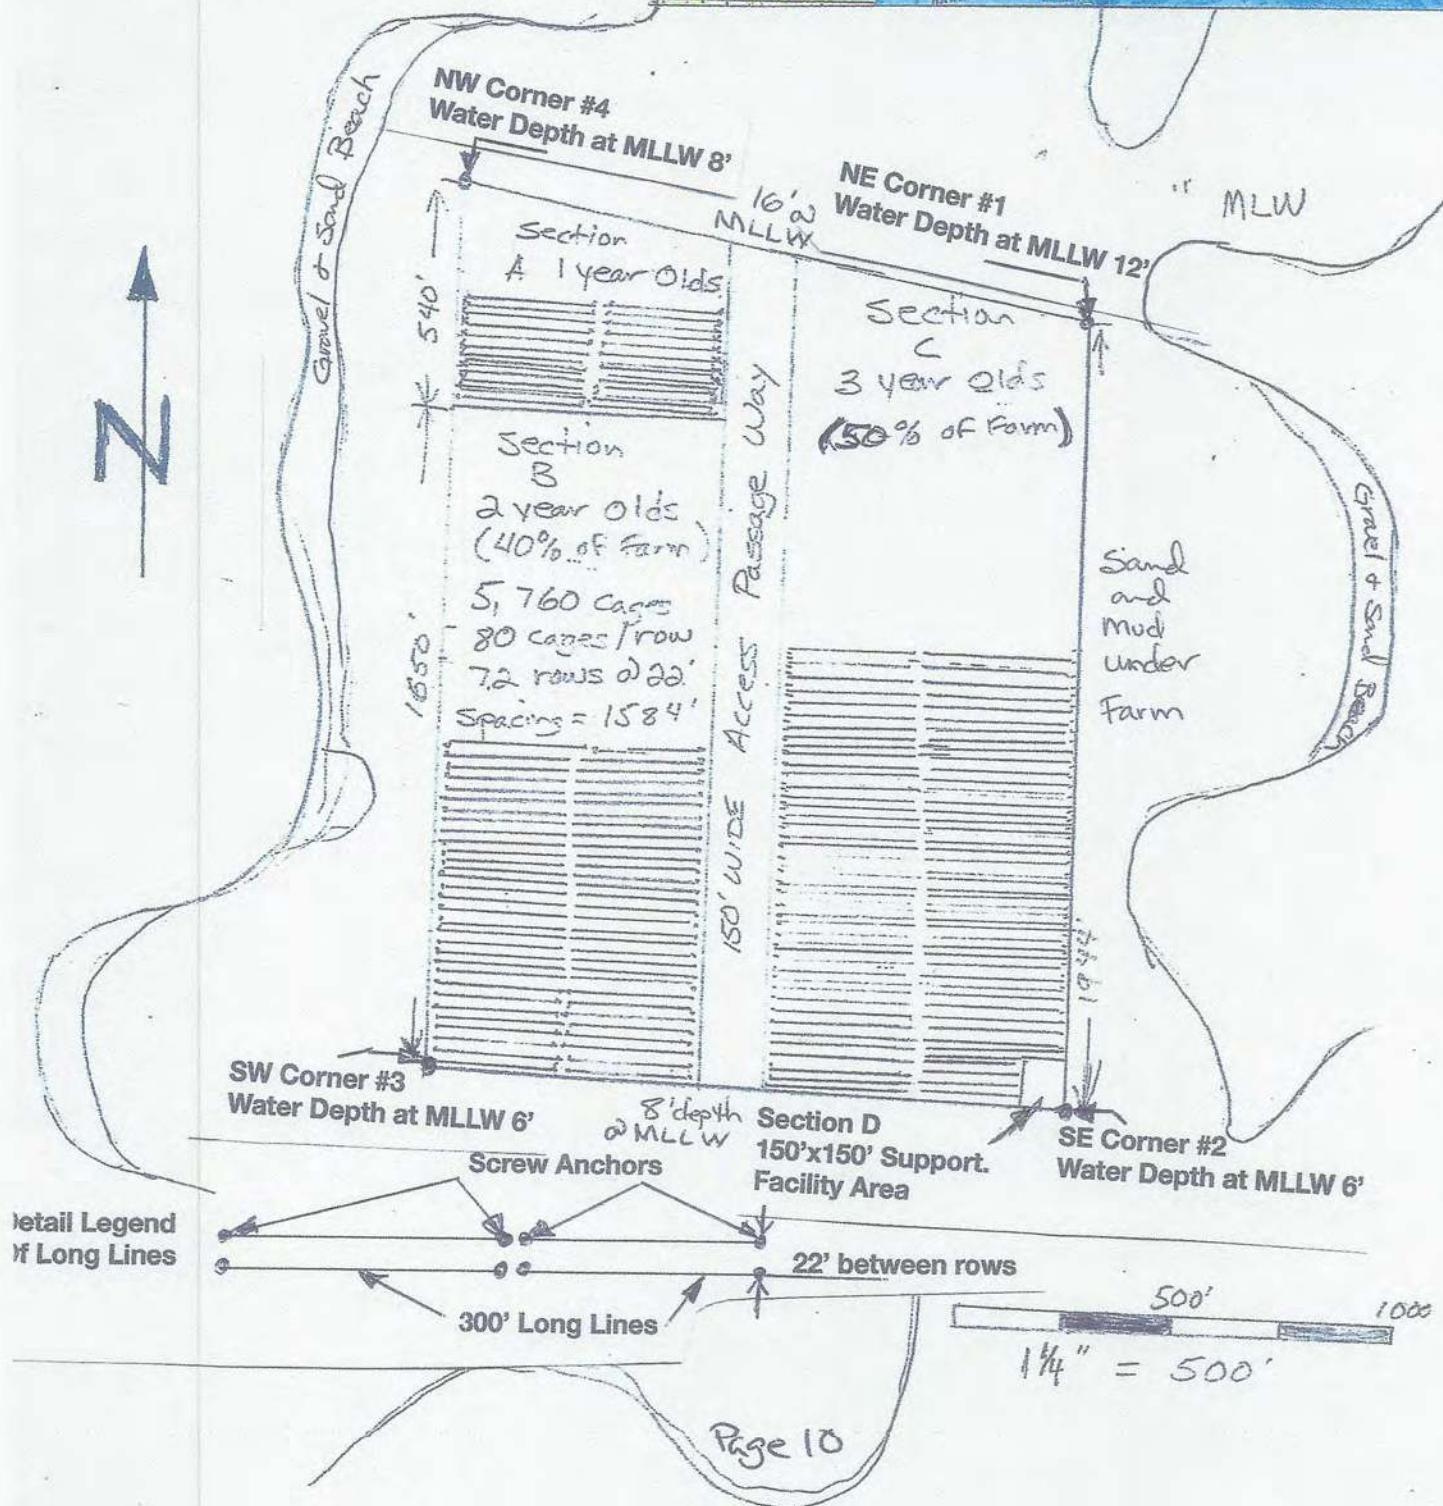 NW Corner #4
Water Depth at MLLW 8'
NE Corner #1
Water Depth at MLLW 12'
16' @
MLLW
MLW
Gravel & Sand Beach
N
540'
Section
A 1 year Olds
Section
C
3 year olds
(50% of Farm)
Section
B
2 year olds
(40% of Farm)
5,760 cages
80 cages/row
72 rows @ 22'
Spacing = 1584'
1650'
150' WIDE ACCESS Passage Way
Sand
and
Mud
under
Farm
Gravel & Sand Beach
SW Corner #3
Water Depth at MLLW 6'
8' depth
@ MLLW
Section D
150'x150' Support.
Facility Area
SE Corner #2
Water Depth at MLLW 6'
Screw Anchors
Detail Legend
Of Long Lines
22' between rows
300' Long Lines
500'
1000
1 1/4" = 500'
Page 10